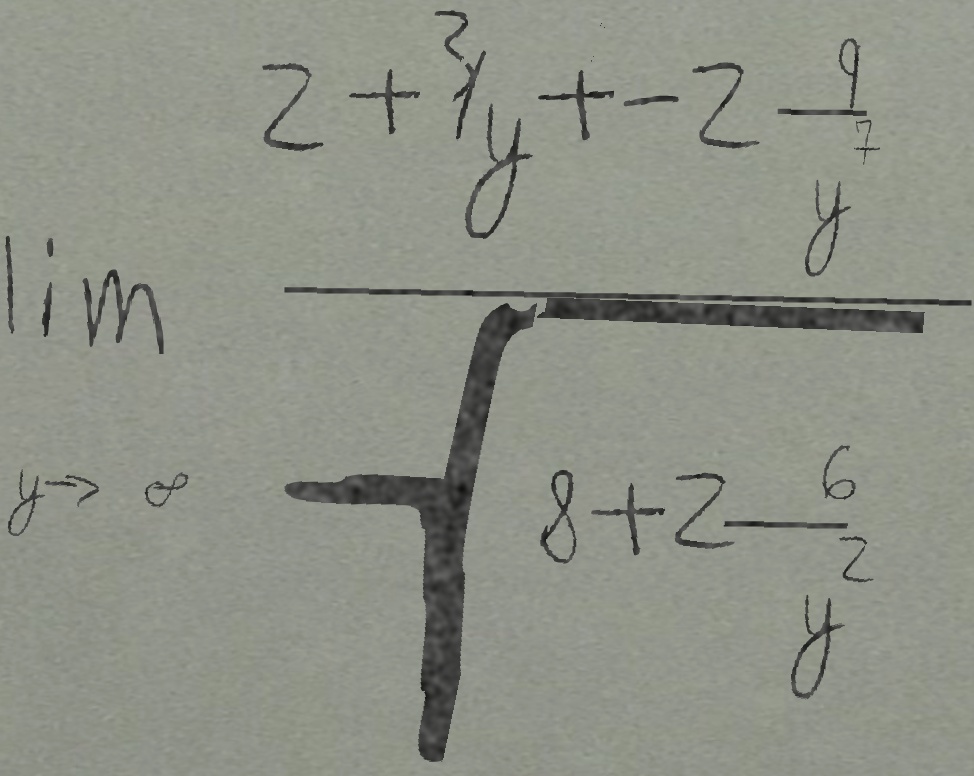 \lim_{y \to \infty} \frac{2 + 3/y + -2 \frac{9}{y^7}}{\sqrt{8 + 2 \frac{6}{y^2}}}